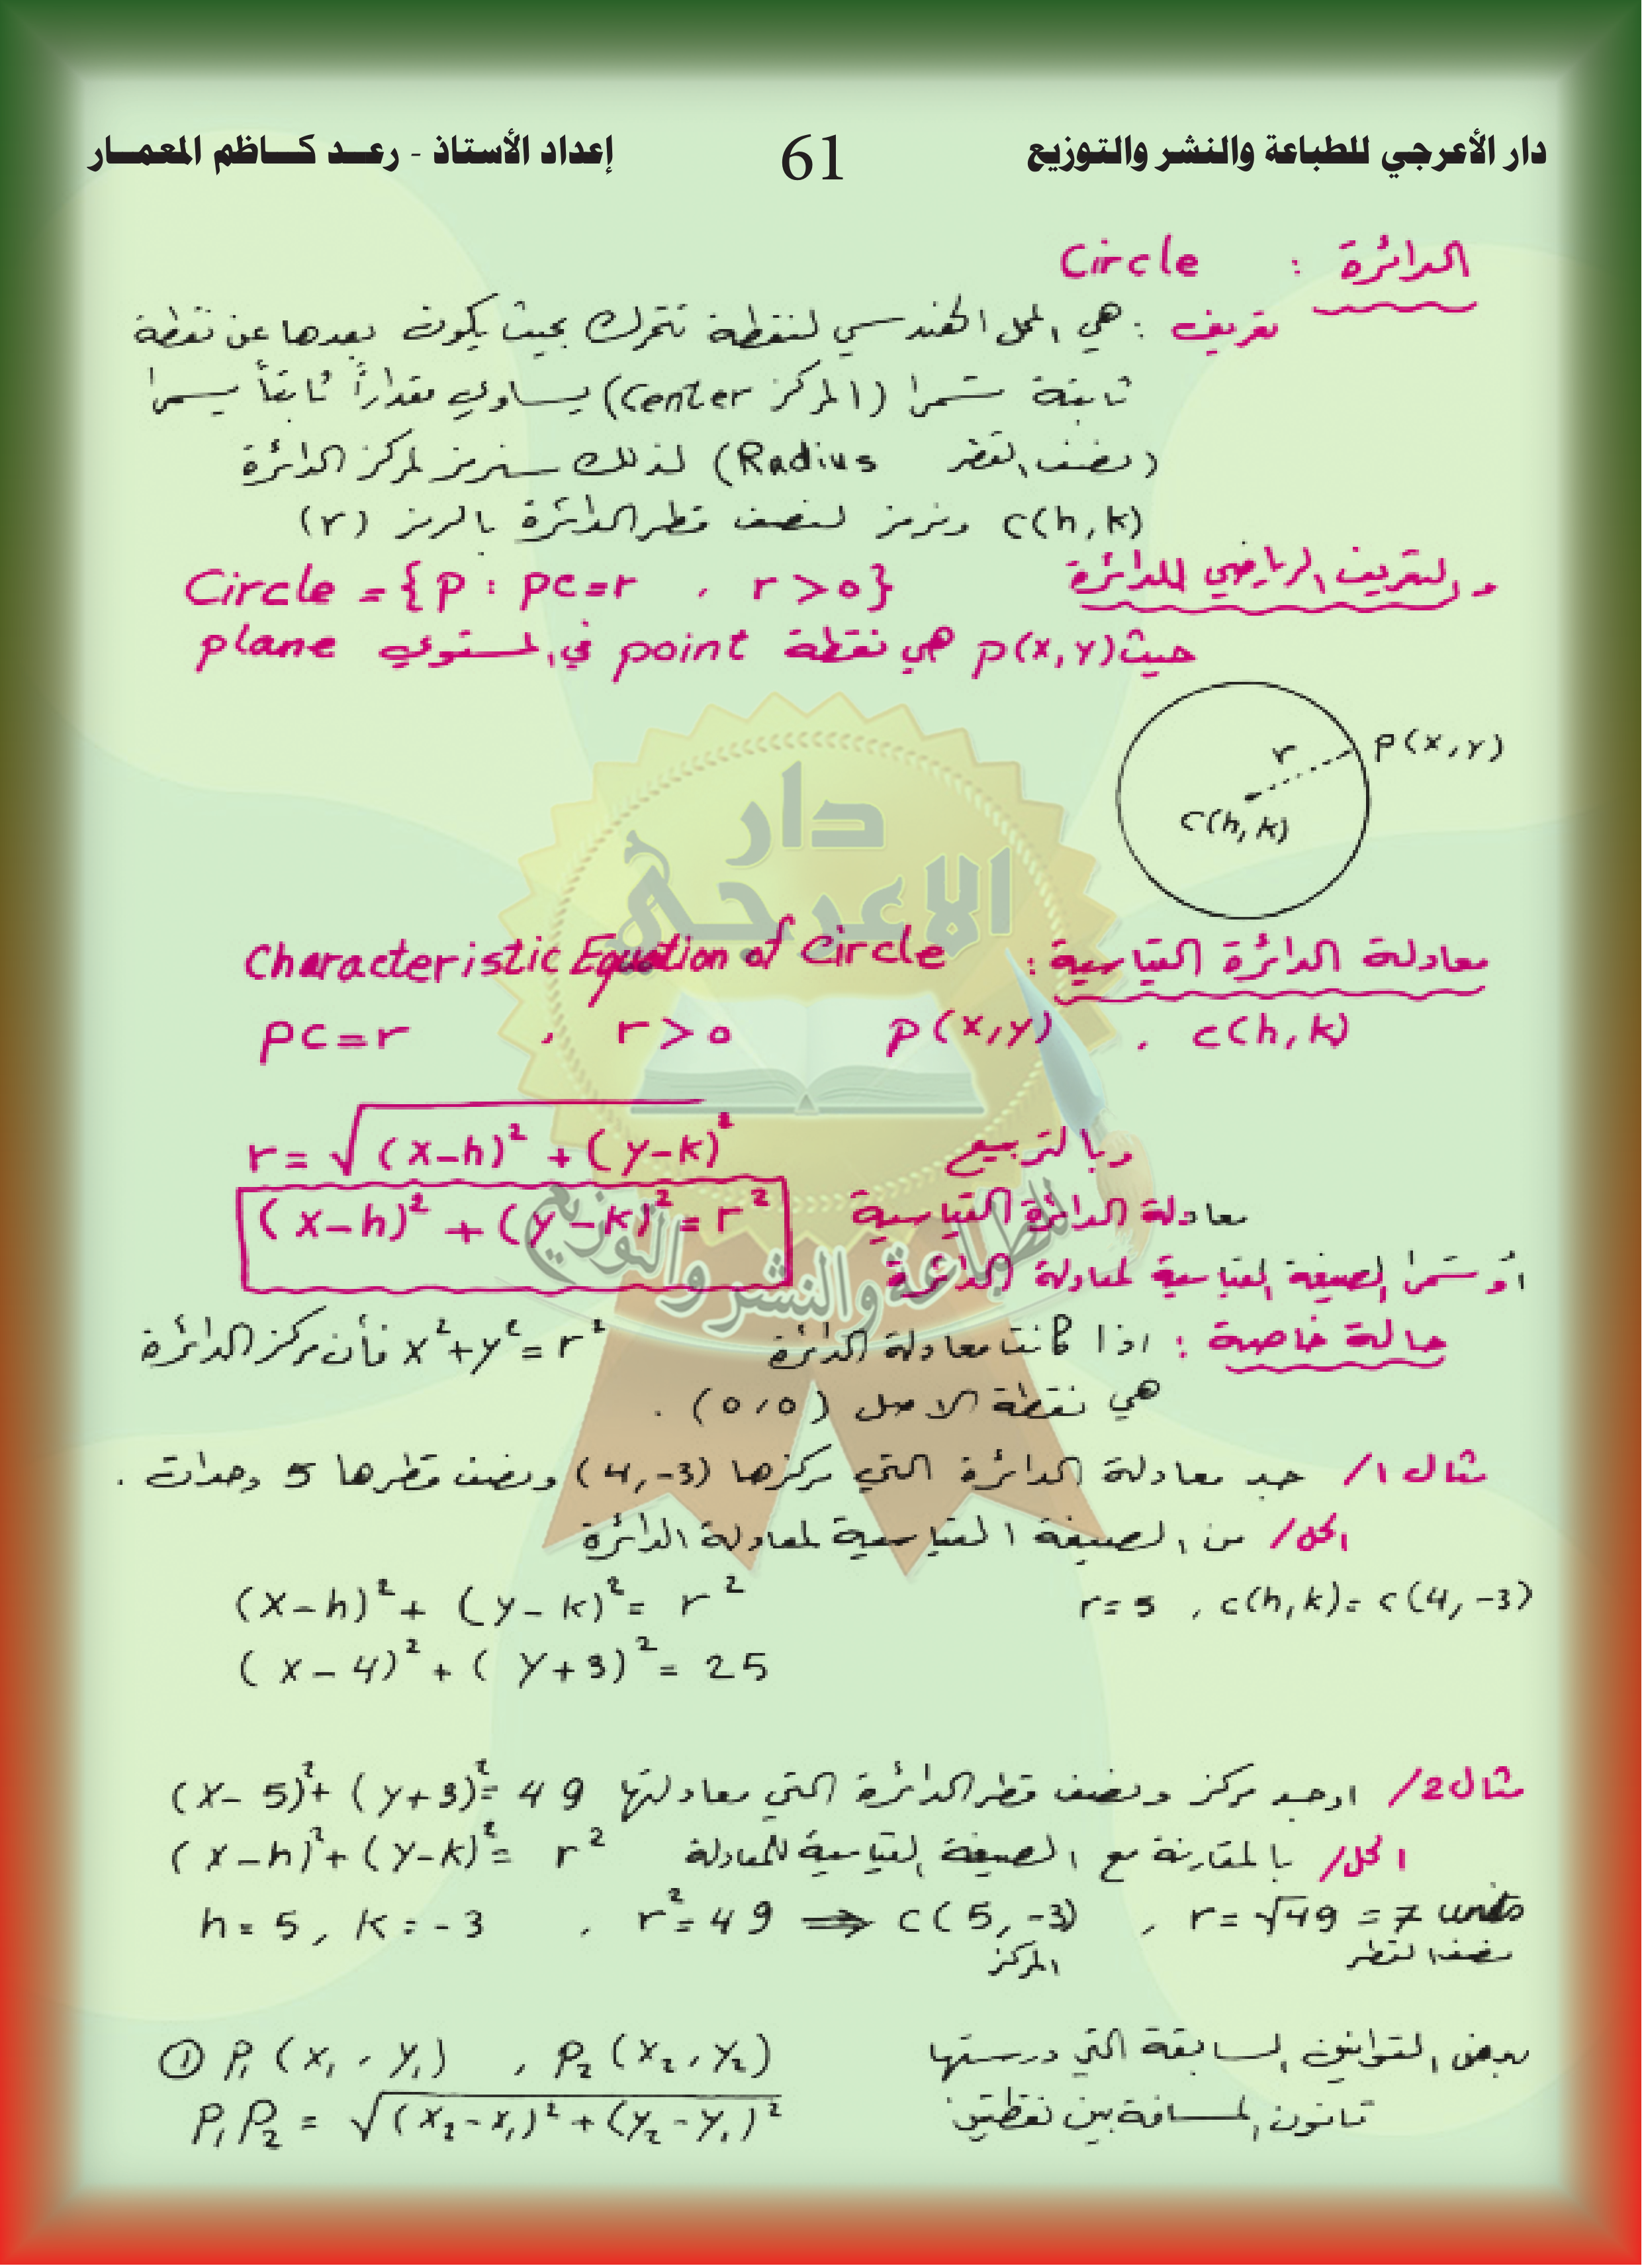 دار الأعرجي للطباعة والنشر والتوزيع 61 إعداد الأستاذ - رعد كاظم المعمار
الدائرة : Circle
تعريف : هي المحل الهندسي لنقطة تتحرك بحيث يكون بعدها عن نقطة
ثابتة تسمى (المركز Center) يساوي مقداراً ثابتاً يسمى
(نصف القطر Radius) لذلك سنرمز لمركز الدائرة
c(h,k) ونرمز لنصف قطر الدائرة بالرمز (r)
والتعريف الرياضي للدائرة Circle = {p : pc=r , r>0}
حيث p(x,y) هي نقطة point في المستوي plane
r
p(x,y)
c(h,k)
دار
الاعرجي
للطباعة والنشر والتوزيع
معادلة الدائرة القياسية : Characteristic Equation of Circle
pc=r , r>0 p(x,y) , c(h,k)
r = √(x-h)² + (y-k)² وبالتربيع
(x-h)² + (y-k)² = r² معادلة الدائرة القياسية
أو تسمى الصيغة القياسية لمعادلة الدائرة
حالة خاصة : اذا كانت معادلة الدائرة x²+y²=r² فأن مركز الدائرة
هي نقطة الاصل (0,0) .
مثال 1/ جد معادلة الدائرة التي مركزها (4,-3) ونصف قطرها 5 وحدات .
الحل/ من الصيغة القياسية لمعادلة الدائرة
(x-h)² + (y-k)² = r² r=5 , c(h,k)=c(4,-3)
(x-4)² + (y+3)² = 25
مثال 2/ اوجد مركز ونصف قطر الدائرة التي معادلتها (x-5)²+(y+3)²=49
الحل/ بالمقارنة مع الصيغة القياسية للمعادلة (x-h)²+(y-k)²=r²
h=5, k=-3 , r²=49 ⇒ c(5,-3) , r=√49=7 units
المركز نصف القطر
بعض القوانين السابقة التي درستها ① P₁(x₁,y₁) , P₂(x₂,y₂)
قانون المسافة بين نقطتين P₁P₂ = √(x₂-x₁)²+(y₂-y₁)²